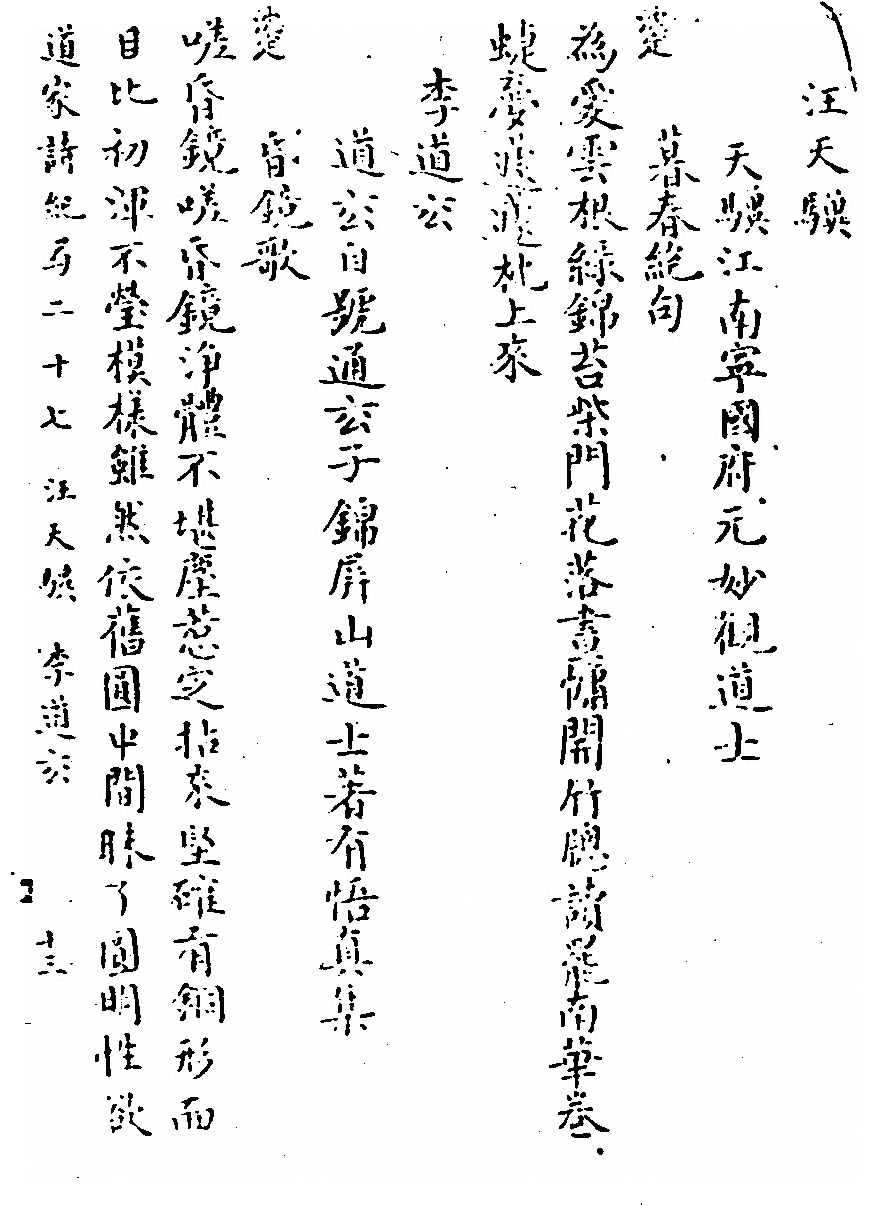 汪天驥
天驥江南寧國府元妙觀道士
暮春絕句
為愛雲根綠錦苔柴門花落晝慵開竹牕讀罷南華卷
蜨夢蘧蘧枕上來
李道玄
道玄自號通玄子錦屏山道士著有悟真集
昏鏡歌
嗟昏鏡嗟昏鏡淨體不堪塵惹定拈來堅確有銅形而
目比初渾不瑩模樣雖然依舊圓中間昧了圓明性欲
道家詩紀弓二十七 汪天驥 李道玄 十三